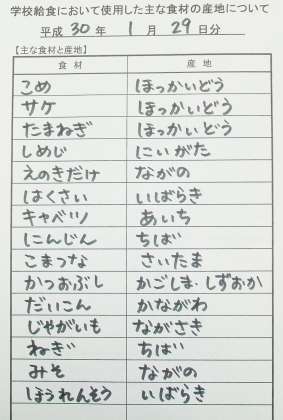 学校給食において使用した主な食材の産地について
平成 30 年 1 月 29 日分
【主な食材と産地】
食材 産地
こめ ほっかいどう
サケ ほっかいどう
たまねぎ ほっかいどう
しめじ にいがた
えのきだけ ながの
はくさい いばらき
キャベツ あいち
にんじん ちば
こまつな さいたま
かつおぶし かごしま・しずおか
だいこん かながわ
じゃがいも ながさき
ねぎ ちば
みそ ながの
ほうれんそう いばらき